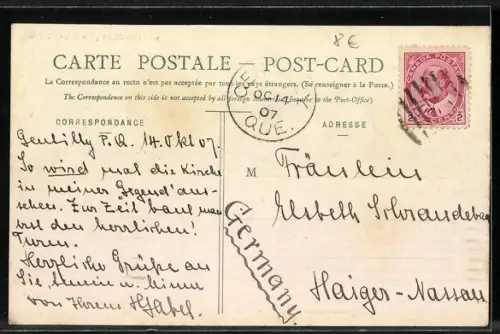 8€
CARTE POSTALE – POST-CARD
La Correspondance au recto n'est pas acceptée par tous les pays étrangers. (Se renseigner à la Poste)
The Correspondence on this side is not accepted by all foreign (Inquire to the Post-Office)
CORRESPONDANCE
ADRESSE
OC 14
07
QUE.
CANADA POSTAGE
2
Gentilly P.Q. 14. Okt 07.
So wird mal die Kirche
in meiner Gegend aus-
sehen. Zur Zeit baut man
erst den herrlichen!
Turm.
Herrliche Grüße an
Sie
von Ihrem
M
Fräulein
Elsbeth
Haiger-Nassau
Germany.